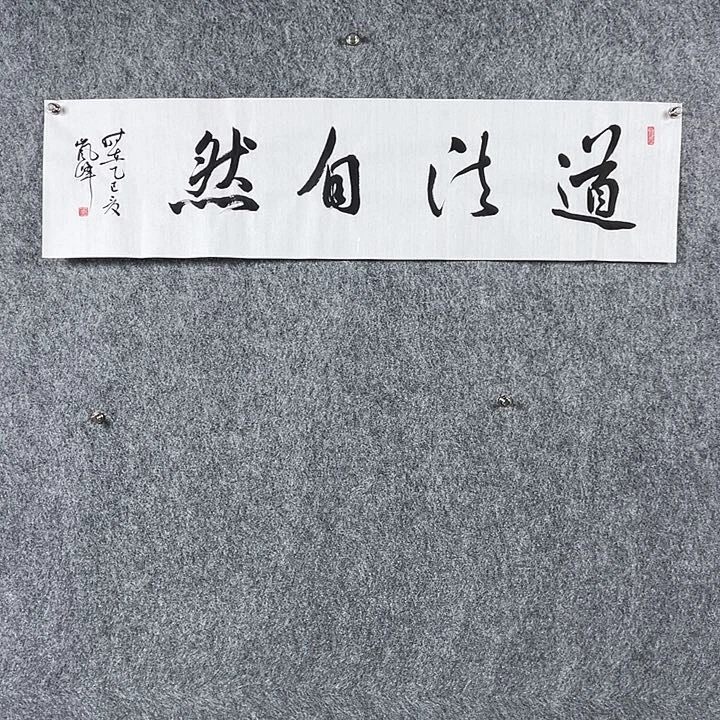 道法自然
时在乙巳夏
岚峰